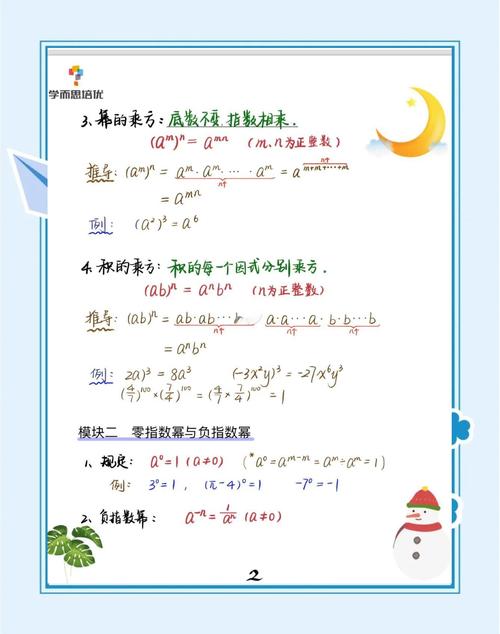 学而思培优
3、幂的乘方：底数不变，指数相乘.
(aᵐ)ⁿ = aᵐⁿ （m、n为正整数）
推导：(aᵐ)ⁿ = aᵐ·aᵐ· ⋯ ·aᵐ = a^{m+m+⋯+m}
n个 n个
= aᵐⁿ
例：(a²)³ = a⁶
4、积的乘方：积的每一个因式分别乘方.
(ab)ⁿ = aⁿbⁿ （n为正整数）
推导：(ab)ⁿ = ab·ab⋯b = a·a⋯a·b·b⋯b
n个 n个 n个
= aⁿbⁿ
例：2a)³ = 8a³ (-3x²y)³ = -27x⁶y³
(4/7)¹⁰⁰×(7/4)¹⁰⁰ = (4/7×7/4)¹⁰⁰ = 1
模块二 零指数幂与负指数幂
1、规定：a⁰=1 (a≠0) (*a⁰=aᵐ⁻ᵐ=aᵐ÷aᵐ=1)
例：3⁰=1， (π-4)⁰=1 -7⁰=-1
2、负指数幂：a⁻ⁿ=1/aⁿ (a≠0)
2